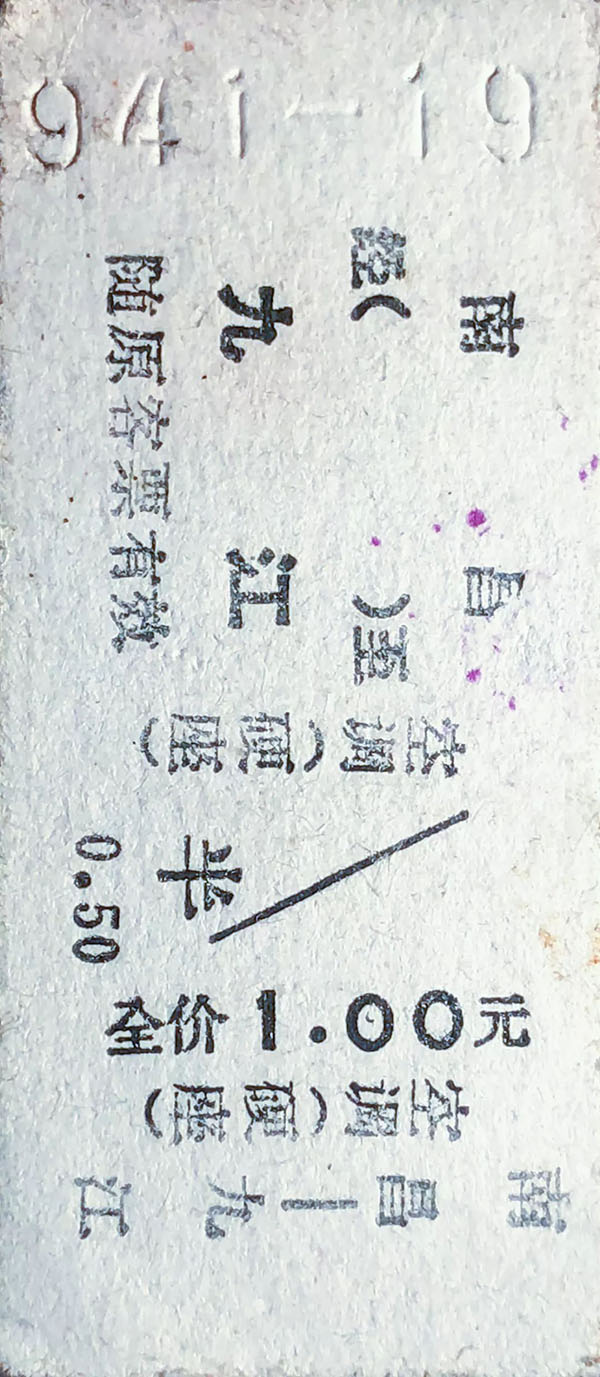 941-19
南昌
经( )至
九江
随原客票有效
空调(硬座)
半
0.50
全价1.00元
空调(硬座)
南昌—九江